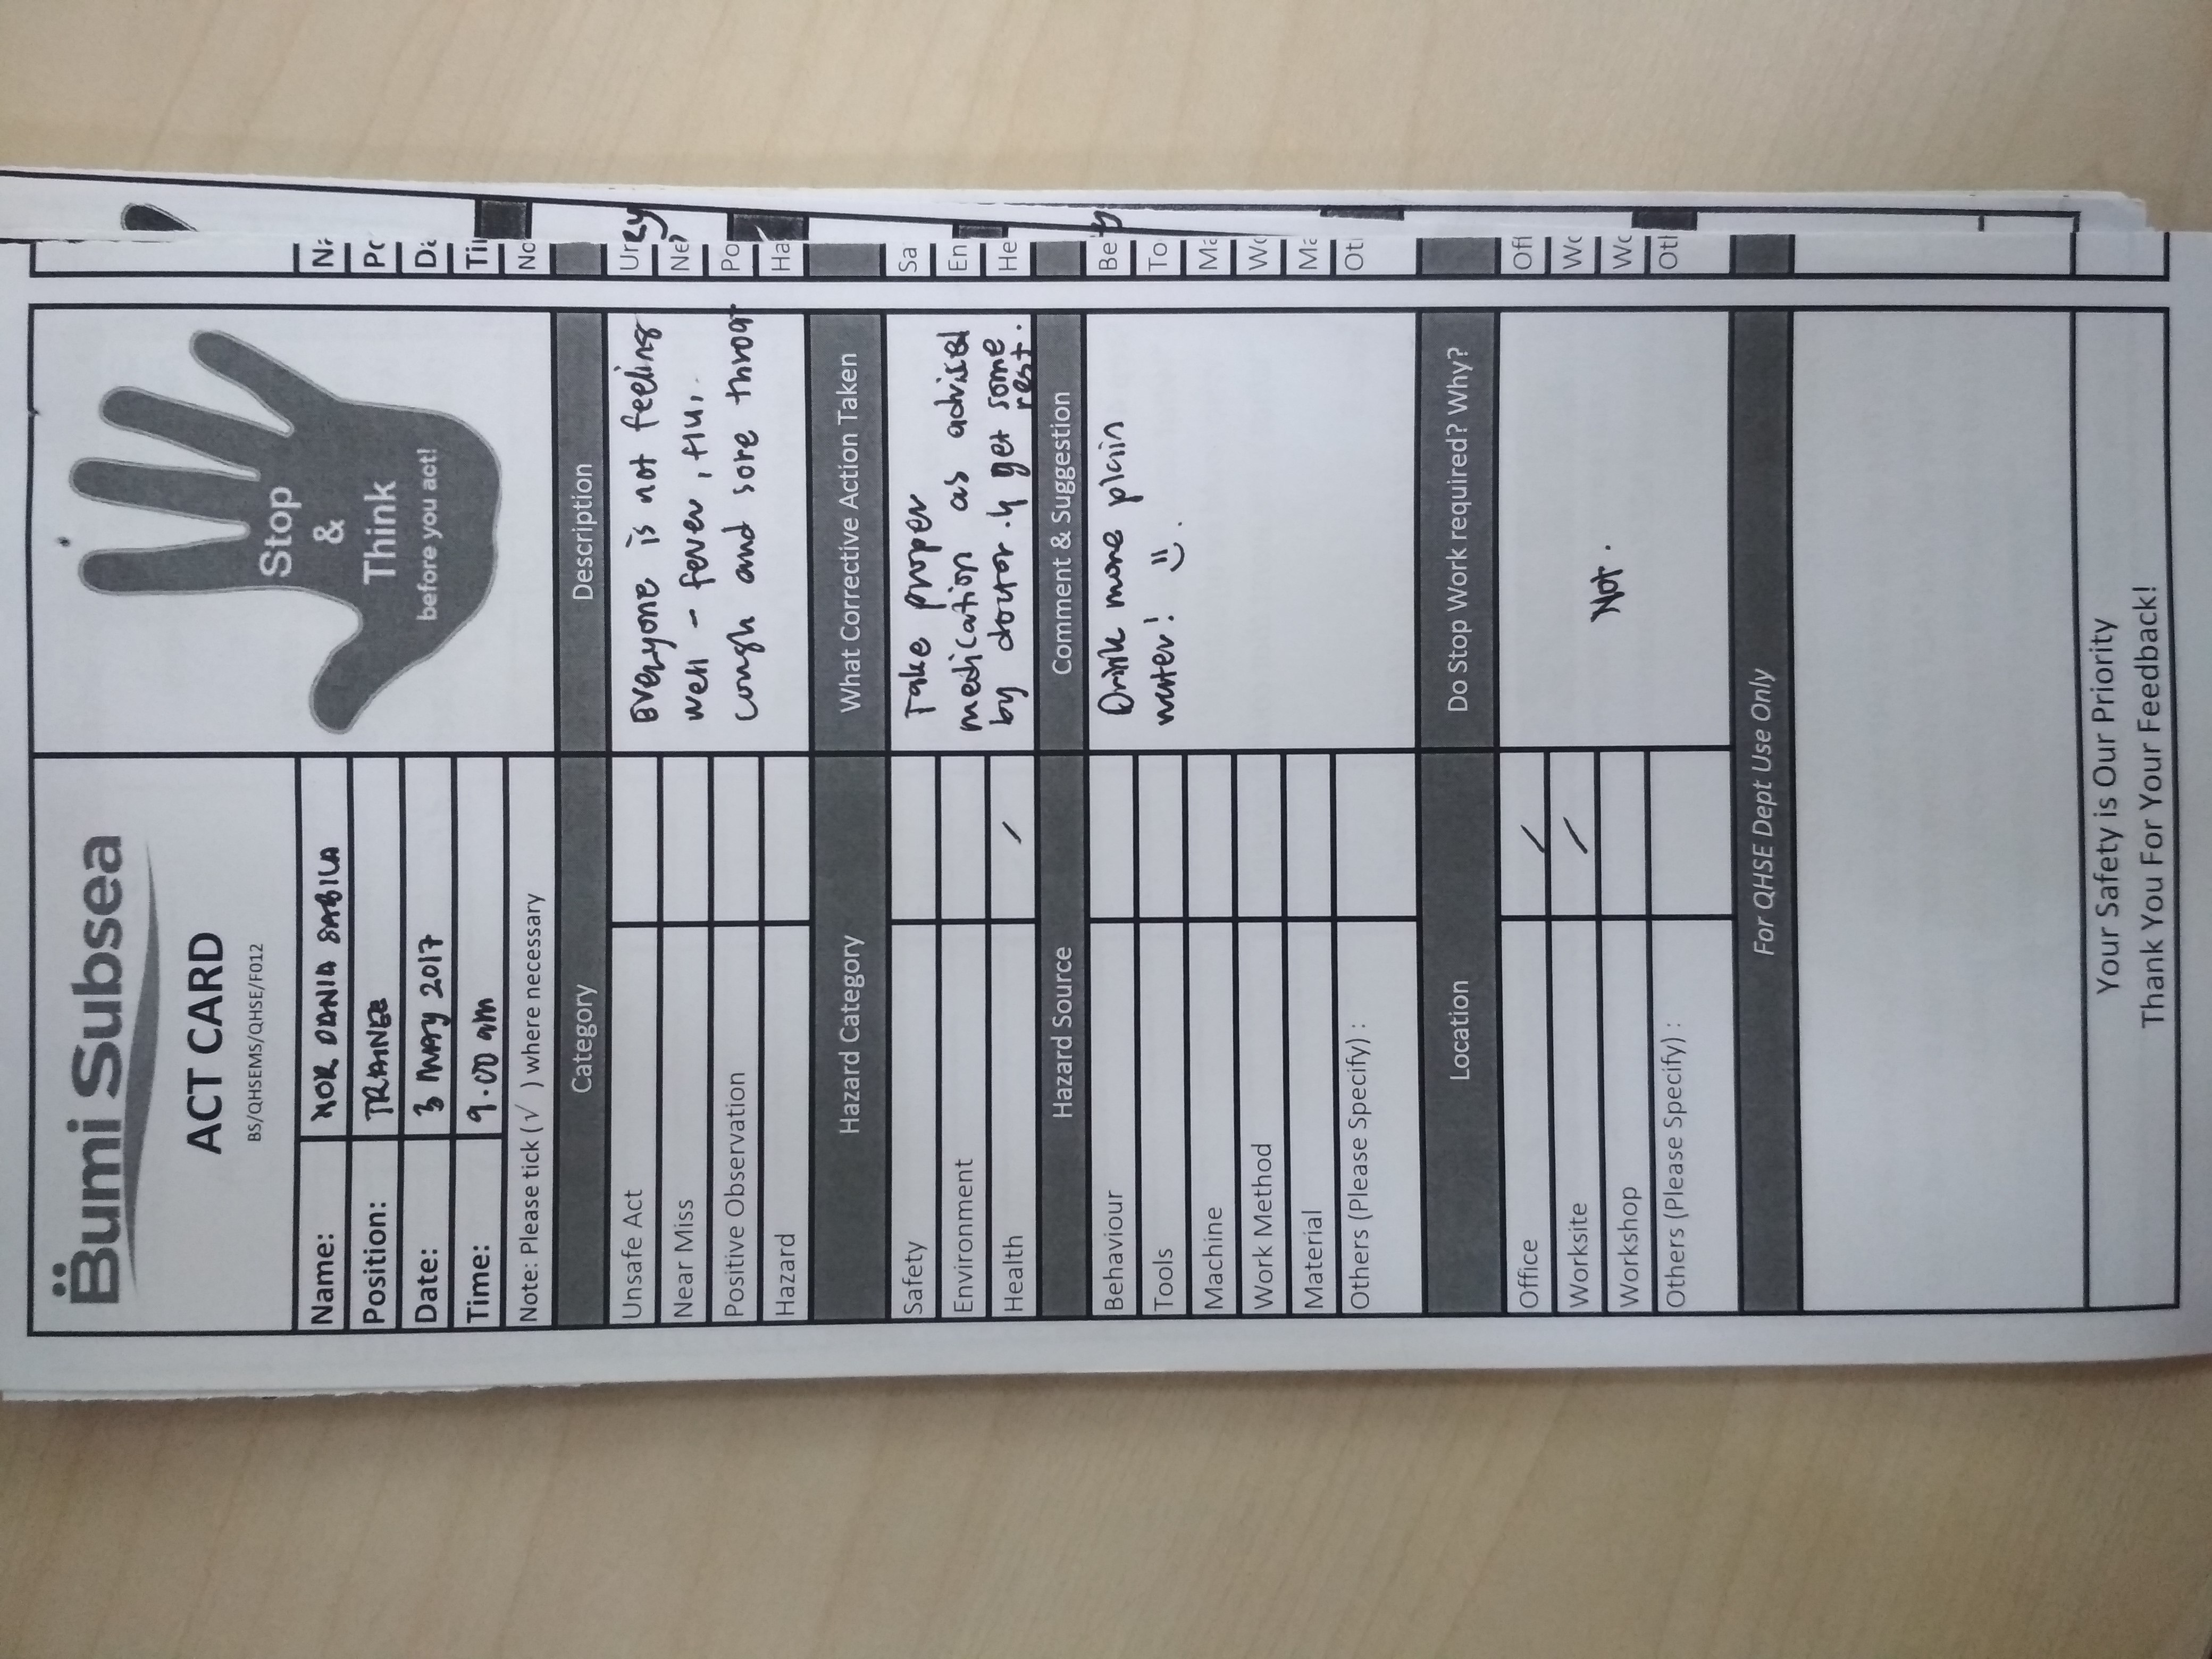 Bumi Subsea
ACT CARD
BS/QHSEMS/QHSE/F012
Stop
&
Think
before you act!
Name: NOR DANIA SABILA
Position: TRAINEE
Date: 3 MAY 2017
Time: 9.00 am
Note: Please tick ( √ ) where necessary
Category Description
Unsafe Act Everyone is not feeling
Near Miss well - fever, flu,
Positive Observation cough and sore throat
Hazard
Hazard Category What Corrective Action Taken
Safety Take proper
Environment medication as advised
Health / by doctor. & get some
rest.
Hazard Source Comment & Suggestion
Behaviour Drink more plain
Tools water!
Machine
Work Method
Material
Others (Please Specify) :
Location Do Stop Work required? Why?
Office /
Worksite / Not.
Workshop
Others (Please Specify) :
For QHSE Dept Use Only
Your Safety is Our Priority
Thank You For Your Feedback!
Na
Po
Da
Ti
No
Un
Ne
Po
Ha
Sa
En
He
Be
To
Ma
Wo
Ma
Oth
Off
Wo
Wo
Oth